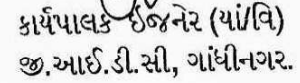 કાર્યપાલક ઈજનેર (યાં/વિ)
જી.આઈ.ડી.સી, ગાંધીનગર.